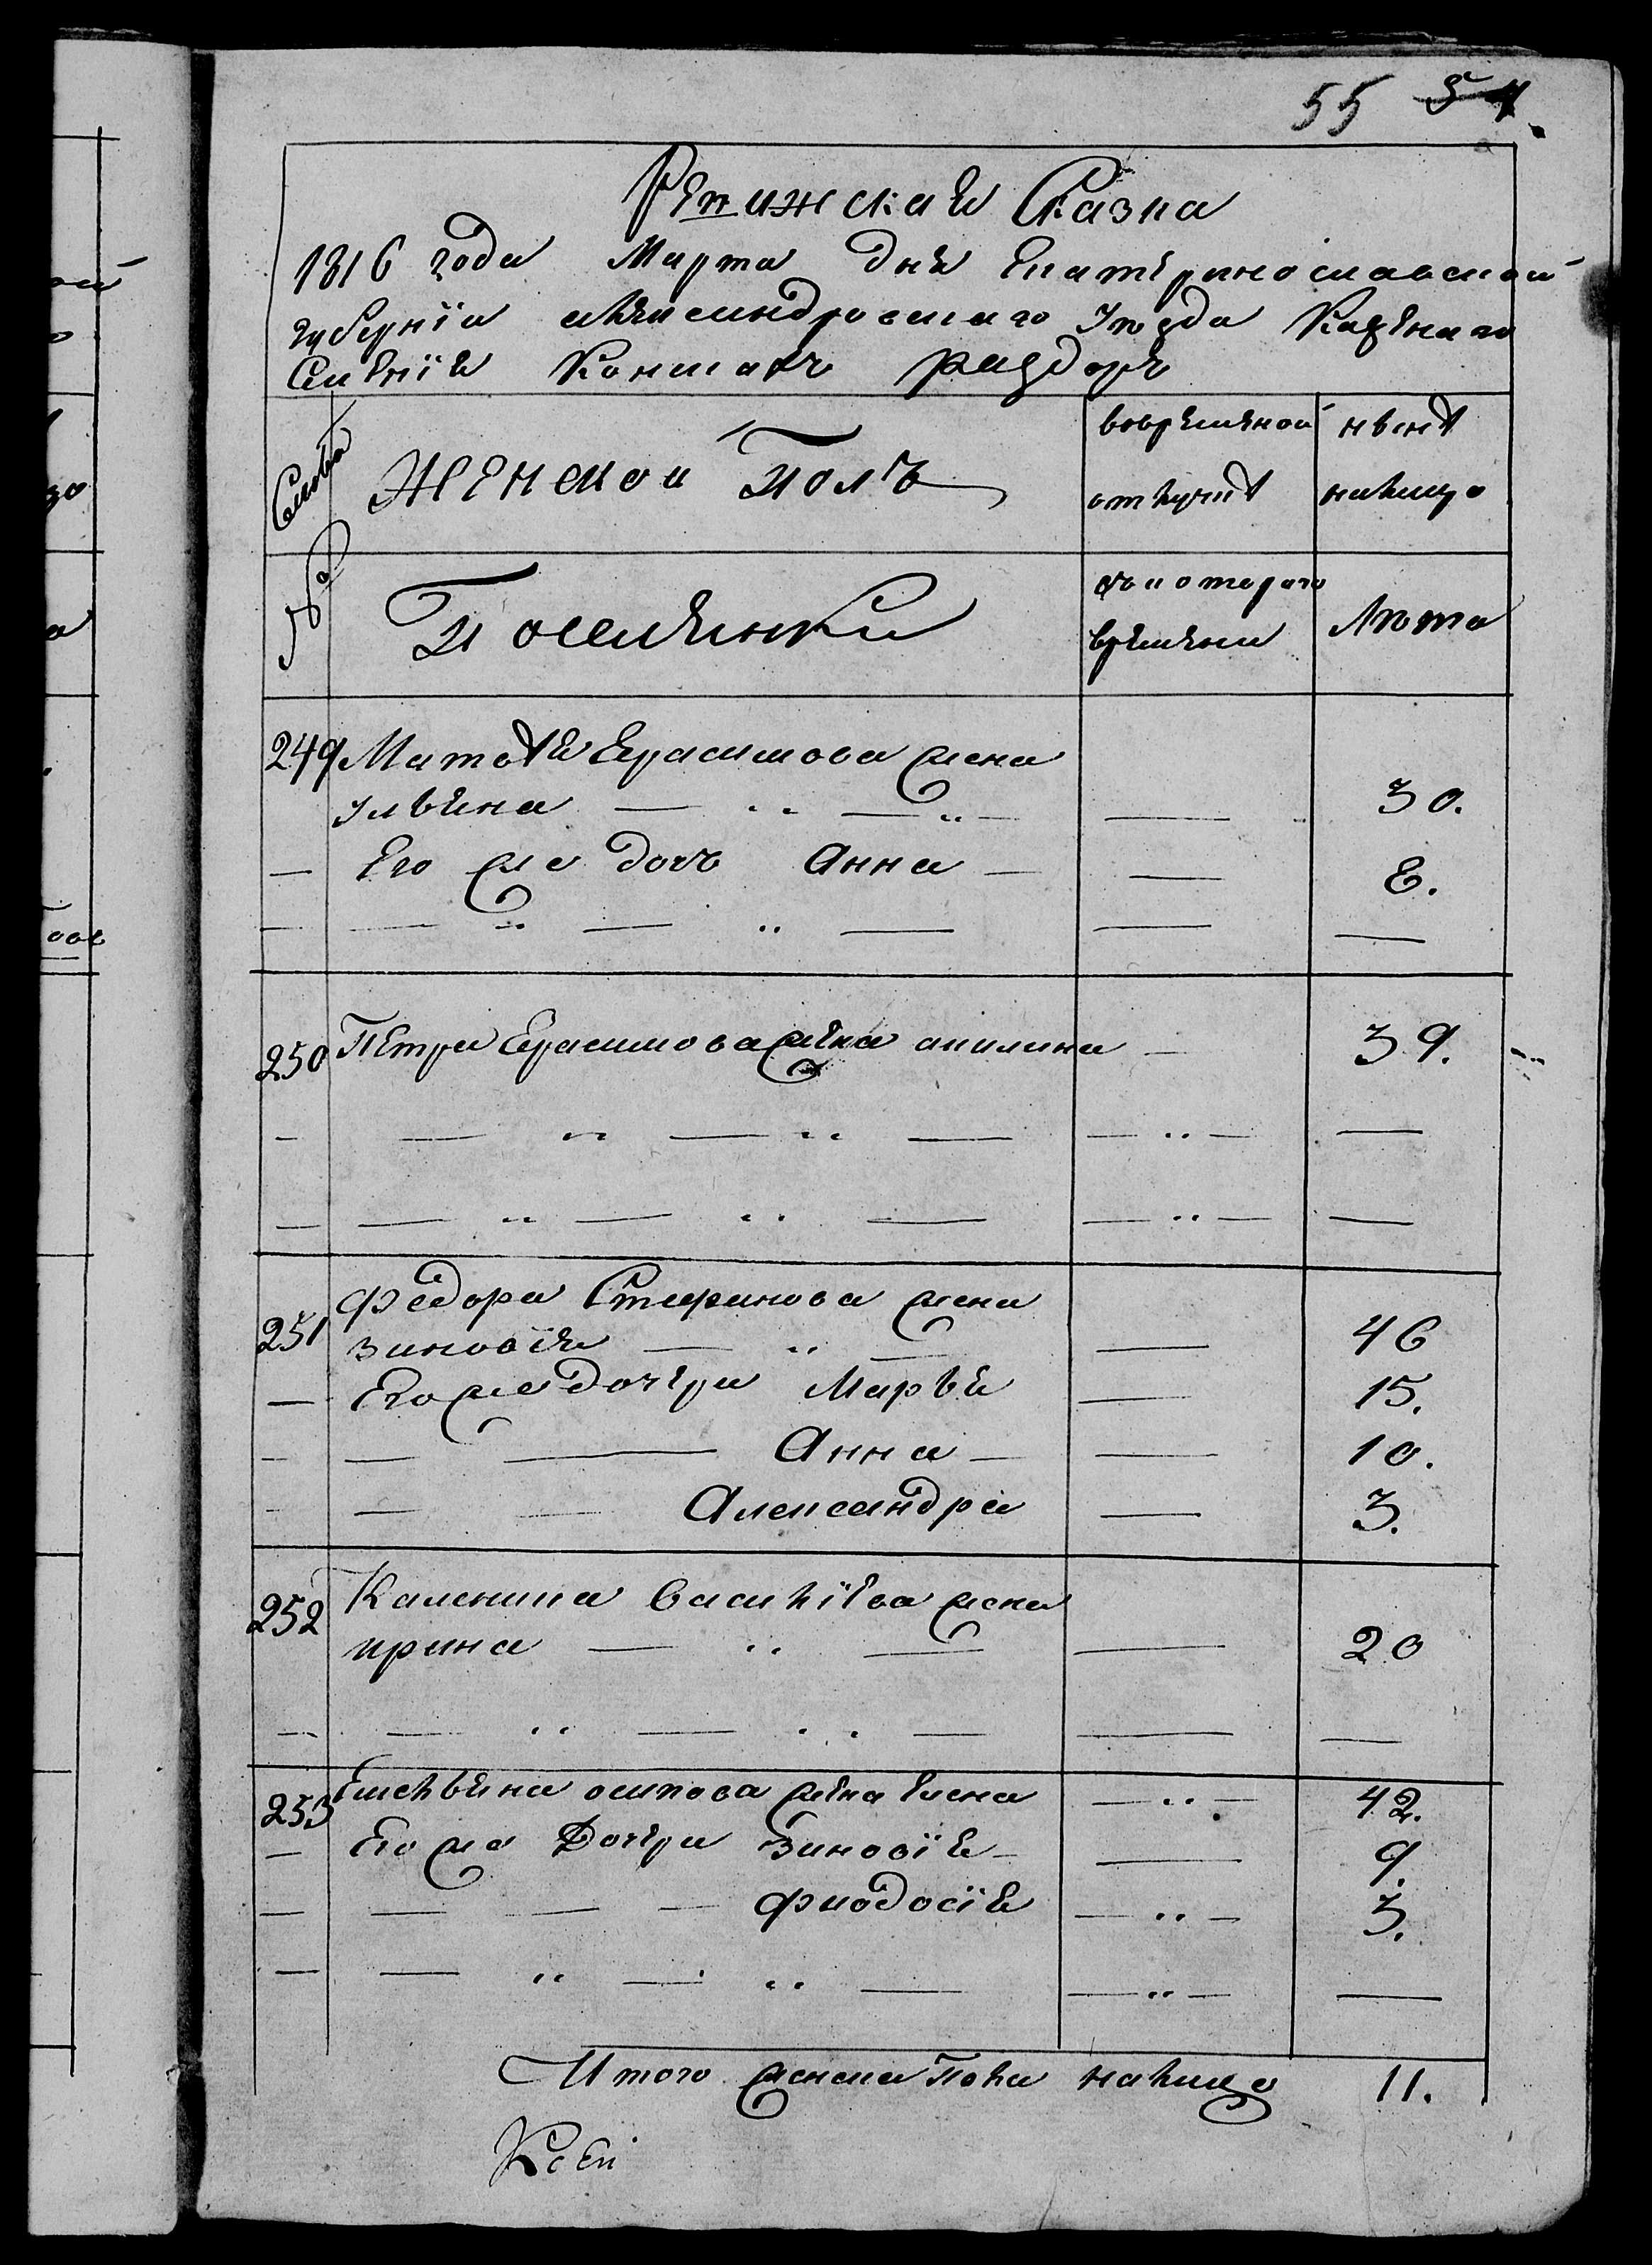 55 54.
Ревижская Сказка
1816 года Марта дня Екатеринославской
губернїи александровскаго Уезда Казенаго
Селенїя Конскихъ раздоръ
Семьи
Женской Полъ
вовременой
нынѣ
отлучкѣ
налицо
№
Поселянки
съ котораго
времени
Лѣта
249 Матвѣя Герасимова жена
ульяна — ״ — ״ — — 30.
— Его же дочь Анна — — 8.
— — ״ — ״ — — —
250 Петра Герасимова жена акилина — 39.
— — ״ — ״ — — ״ — —
— — ״ — ״ — — ״ — —
251 Федора Стефанова жена
зиновїя — ״ — — 46
— Егоже дочери Марья — 15.
— — — Анна — — 10.
— — — Александра — 3.
252 Каленика Василїева жена
ирина — ״ — — 20
— — ״ — ״ — — —
253 Емельяна осипова жена елена — ״ — 42.
— Его же Дочери Зиновїя — — 9.
— — — — фиодосїя — ״ — 3.
— — ״ — ״ — — ״ — —
Итого женска Пола налицо 11.